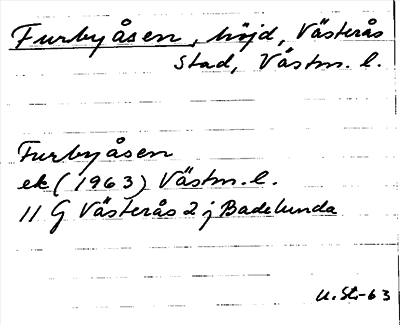 Furbyåsen, höjd, Västerås
stad, Västm. l.
Furbyåsen
ek (1963) Västm. l.
11 G Västerås 2 j Badelunda
U.St.-63